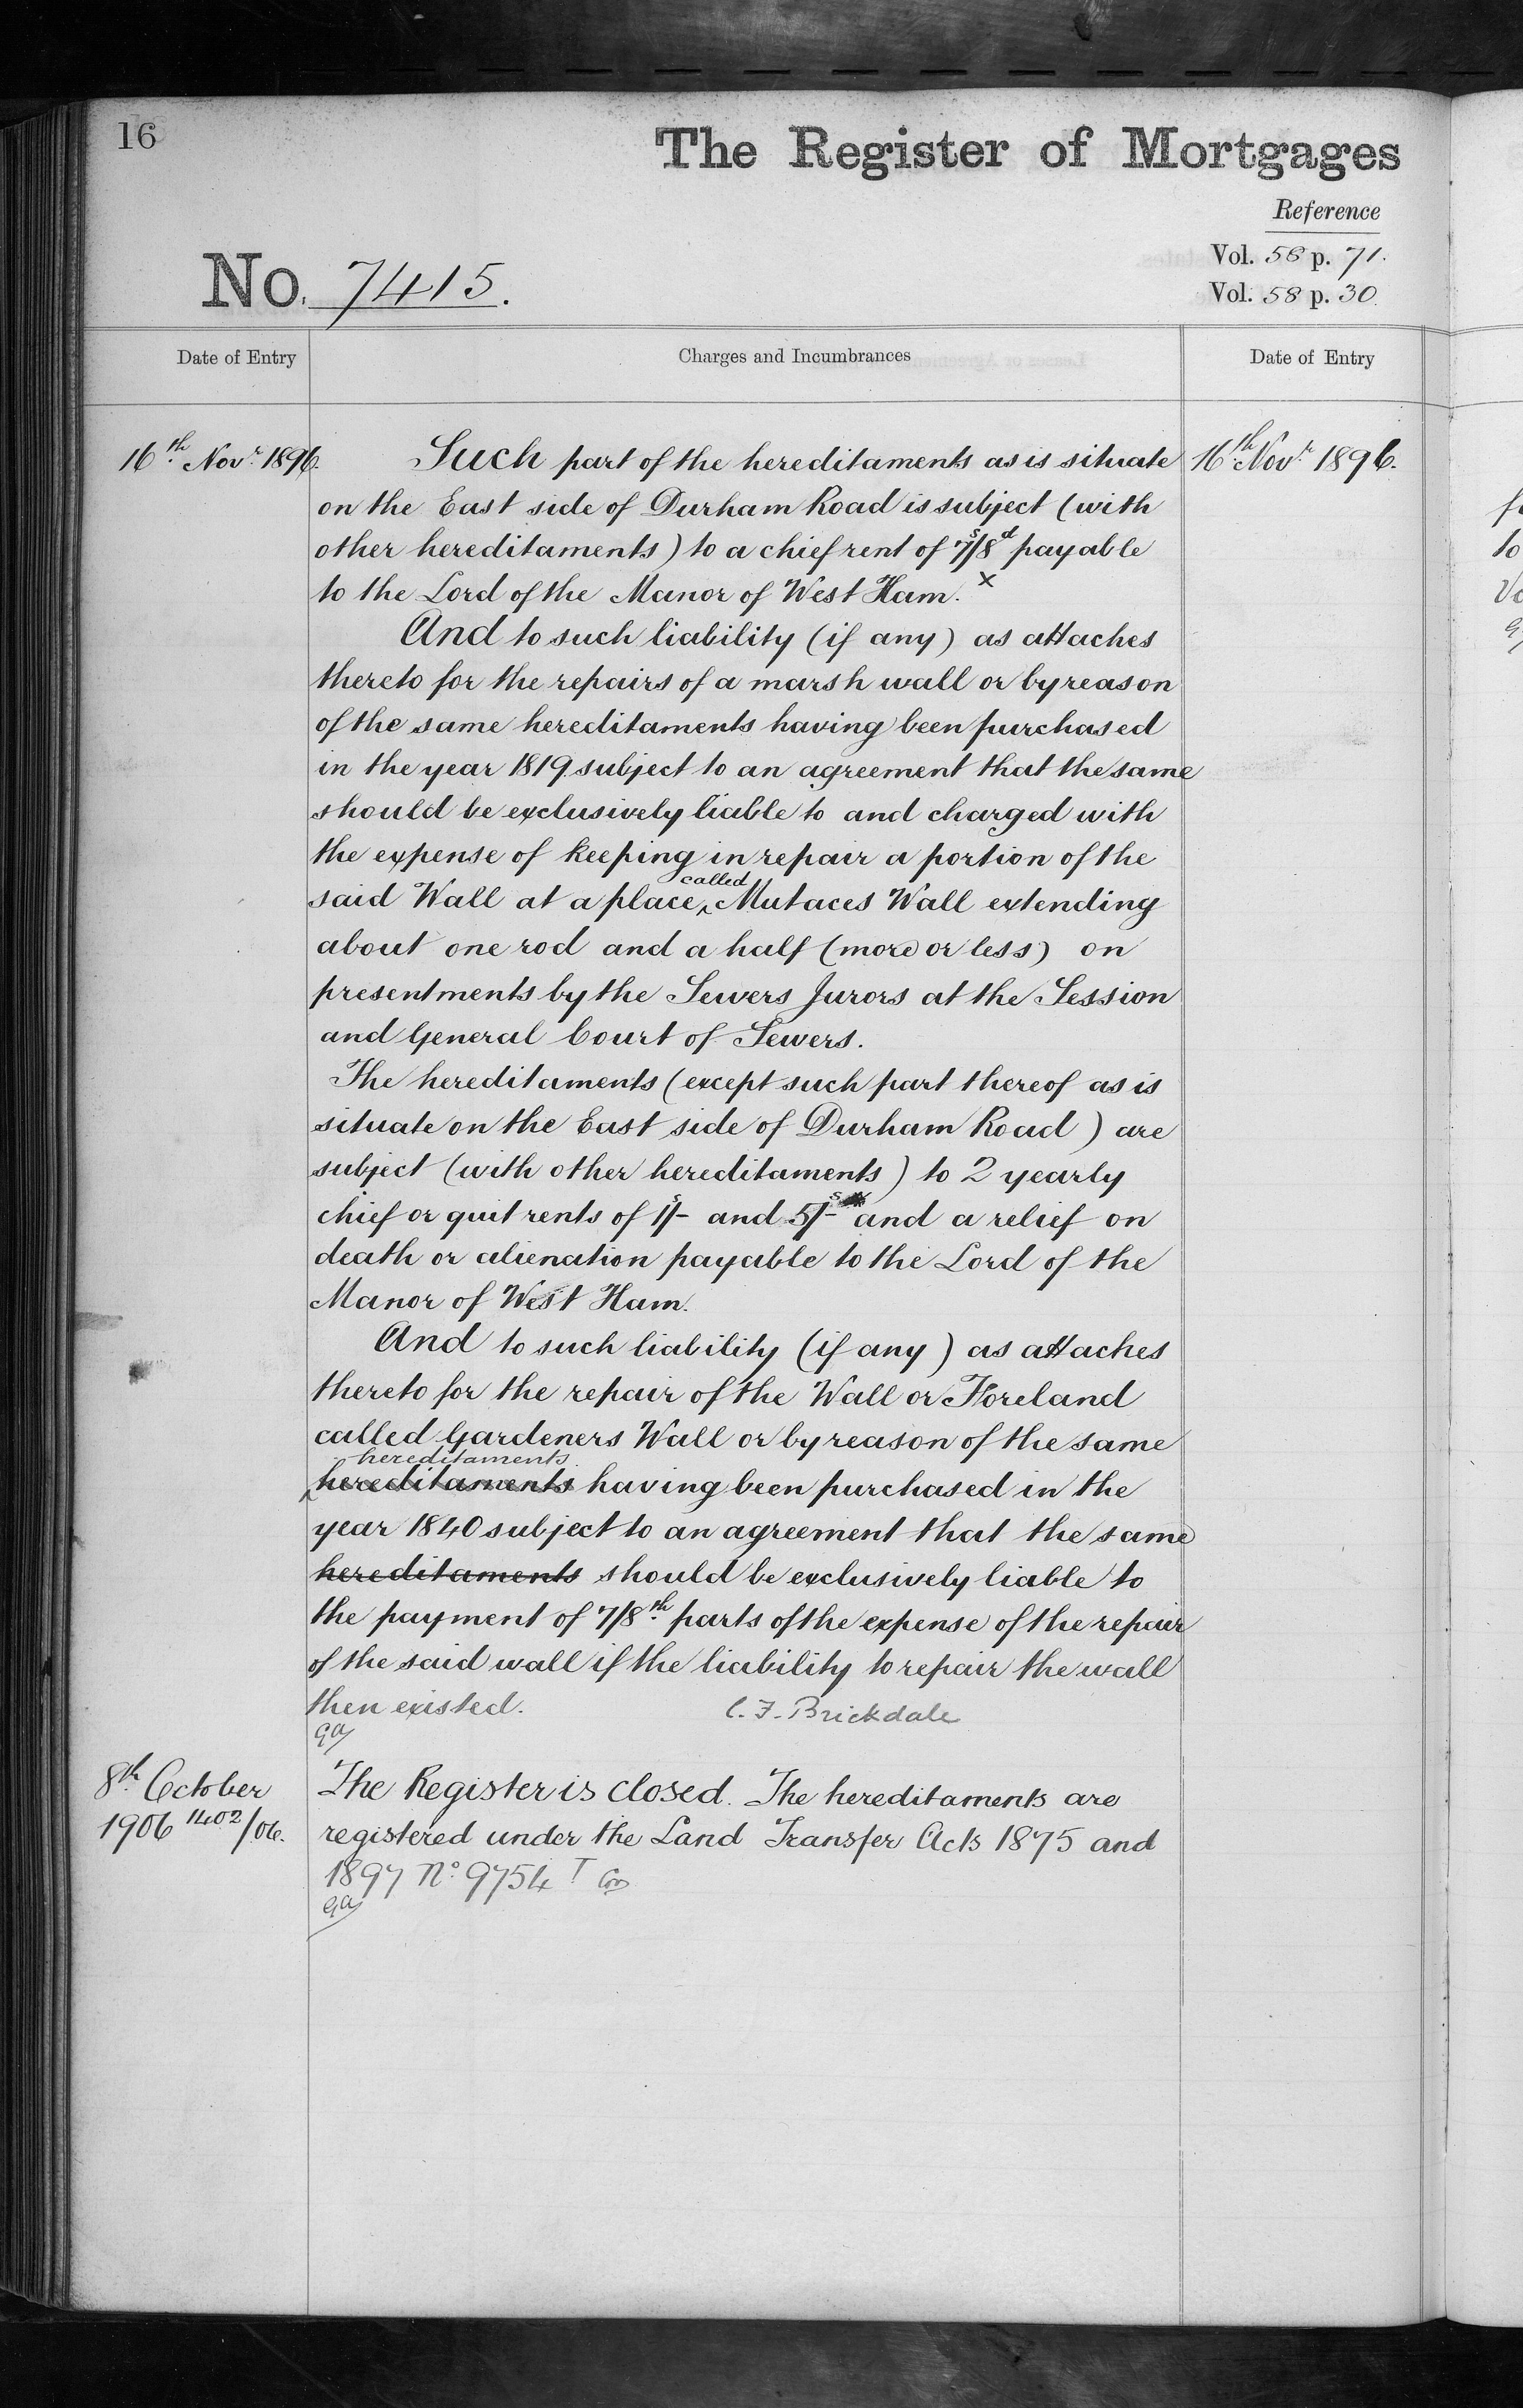 16
The Register of Mortgages
Reference
Vol. 58 p. 71.
Vol. 58 p. 30
No. 7415.
Date of Entry
Charges and Incumbrances
Date of Entry
16th Novr 1896.
Such part of the hereditaments as is situate
16th Novr 1896.
on the East side of Durham Road is subject (with
other hereditaments) to a chief rent of 7s/8d payable
to the Lord of the Manor of West Ham. x
And to such liability (if any) as attaches
thereto for the repairs of a marsh wall or by reason
of the same hereditaments having been purchased
in the year 1819 subject to an agreement that the same
should be exclusively liable to and charged with
the expense of keeping in repair a portion of the
said Wall at a place called Mutaces Wall extending
about one rod and a half (more or less) on
presentments by the Sewers Jurors at the Session
and General Court of Sewers.
The hereditaments (except such part thereof as is
situate on the East side of Durham Road) are
subject (with other hereditaments) to 2 yearly
chief or quit rents of 1s/- and 5s/- and a relief on
death or alienation payable to the Lord of the
Manor of West Ham.
And to such liability (if any) as attaches
thereto for the repair of the Wall or Foreland
called Gardeners Wall or by reason of the same
hereditaments
hereditaments having been purchased in the
year 1840 subject to an agreement that the same
hereditaments should be exclusively liable to
the payment of 7/8th parts of the expense of the repair
of the said wall if the liability to repair the wall
then existed. C. F. Brickdale
GA
8th October
The Register is closed. The hereditaments are
1906 1402/06.
registered under the Land Transfer Acts 1875 and
1897 No. 9754 T
GA